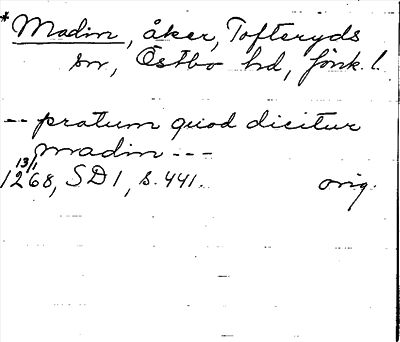 *Madin, åker, Tofteryds
sn, Östbo hd, Jönk. l.
-- pratum quod dicitur
madin ---
13/1
1268, SD 1, s. 441. orig.